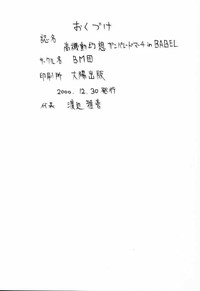 おくづけ
誌名
高機動幻想ガンパレードマーチ in BABEL
サークル名 BM団
印刷所 大陽出版
2000.12.30発行
代表